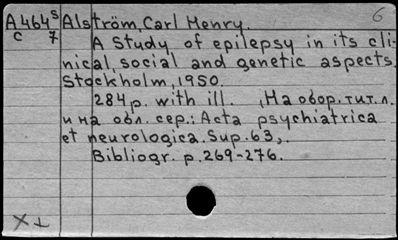 6
A464s Alström, Carl Henry.
c 7 A study of epilepsy in its cli-
nical, social and genetic aspects.
Stockholm, 1950.
284 p. with ill. , На обор. тит. л.
и на обл. сер.: Acta psychiatrica
et neurologica. Sup. 63, .
Bibliogr. p. 269-276.